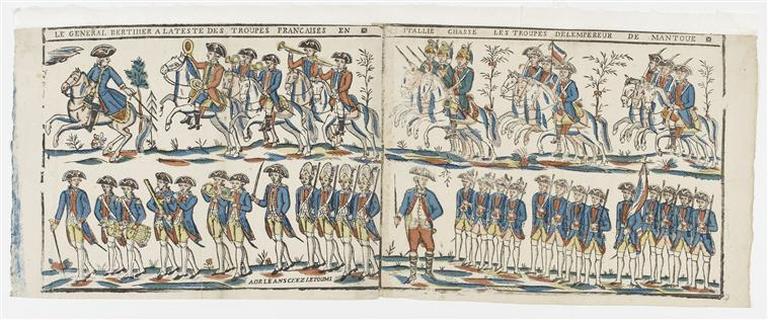 LE GENERAL BERTIHER A LA TESTE DES TROUPES FRANCAISES EN ITALLIE CHASSE LES TROUPES DELEMPEREUR DE MANTOUE
AORLEANS CEZ LETOUMI